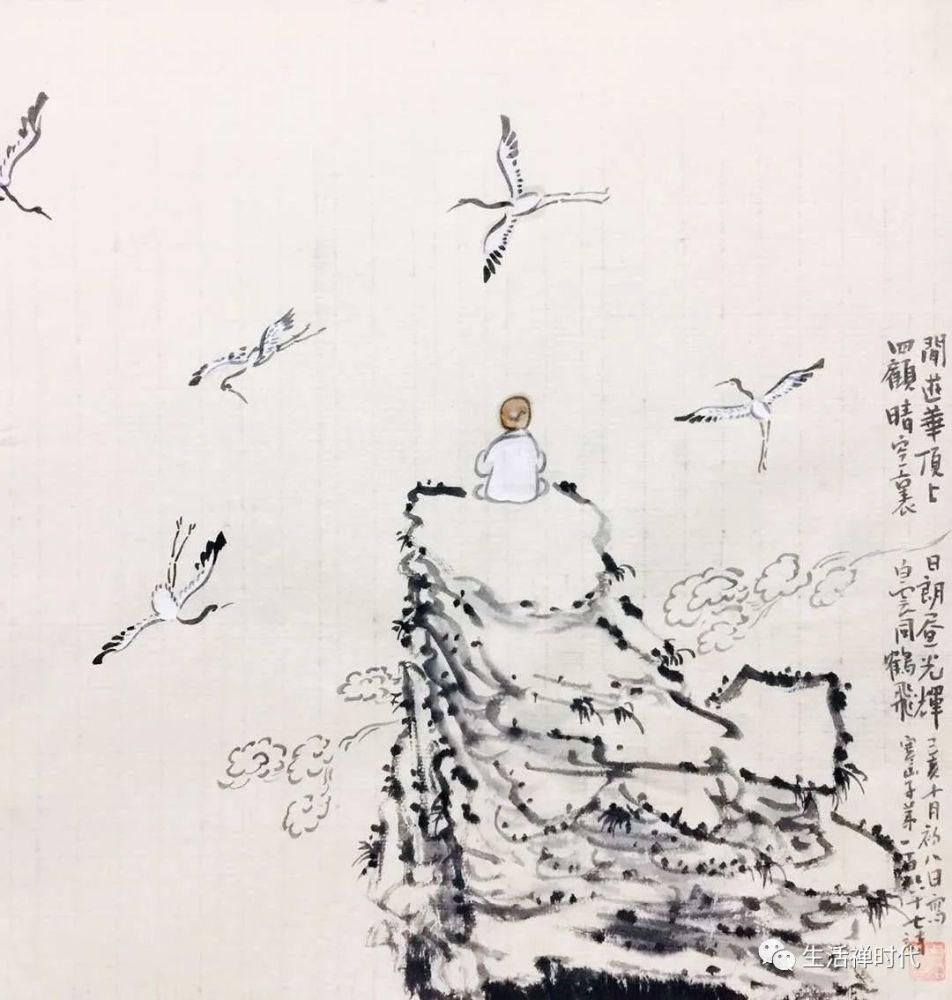 閒遊華頂上 日朗昼光輝 己亥十月初八日寫
四顧晴空裏 白雲同鶴飛 寒山子第一百六十七詩
生活禅时代